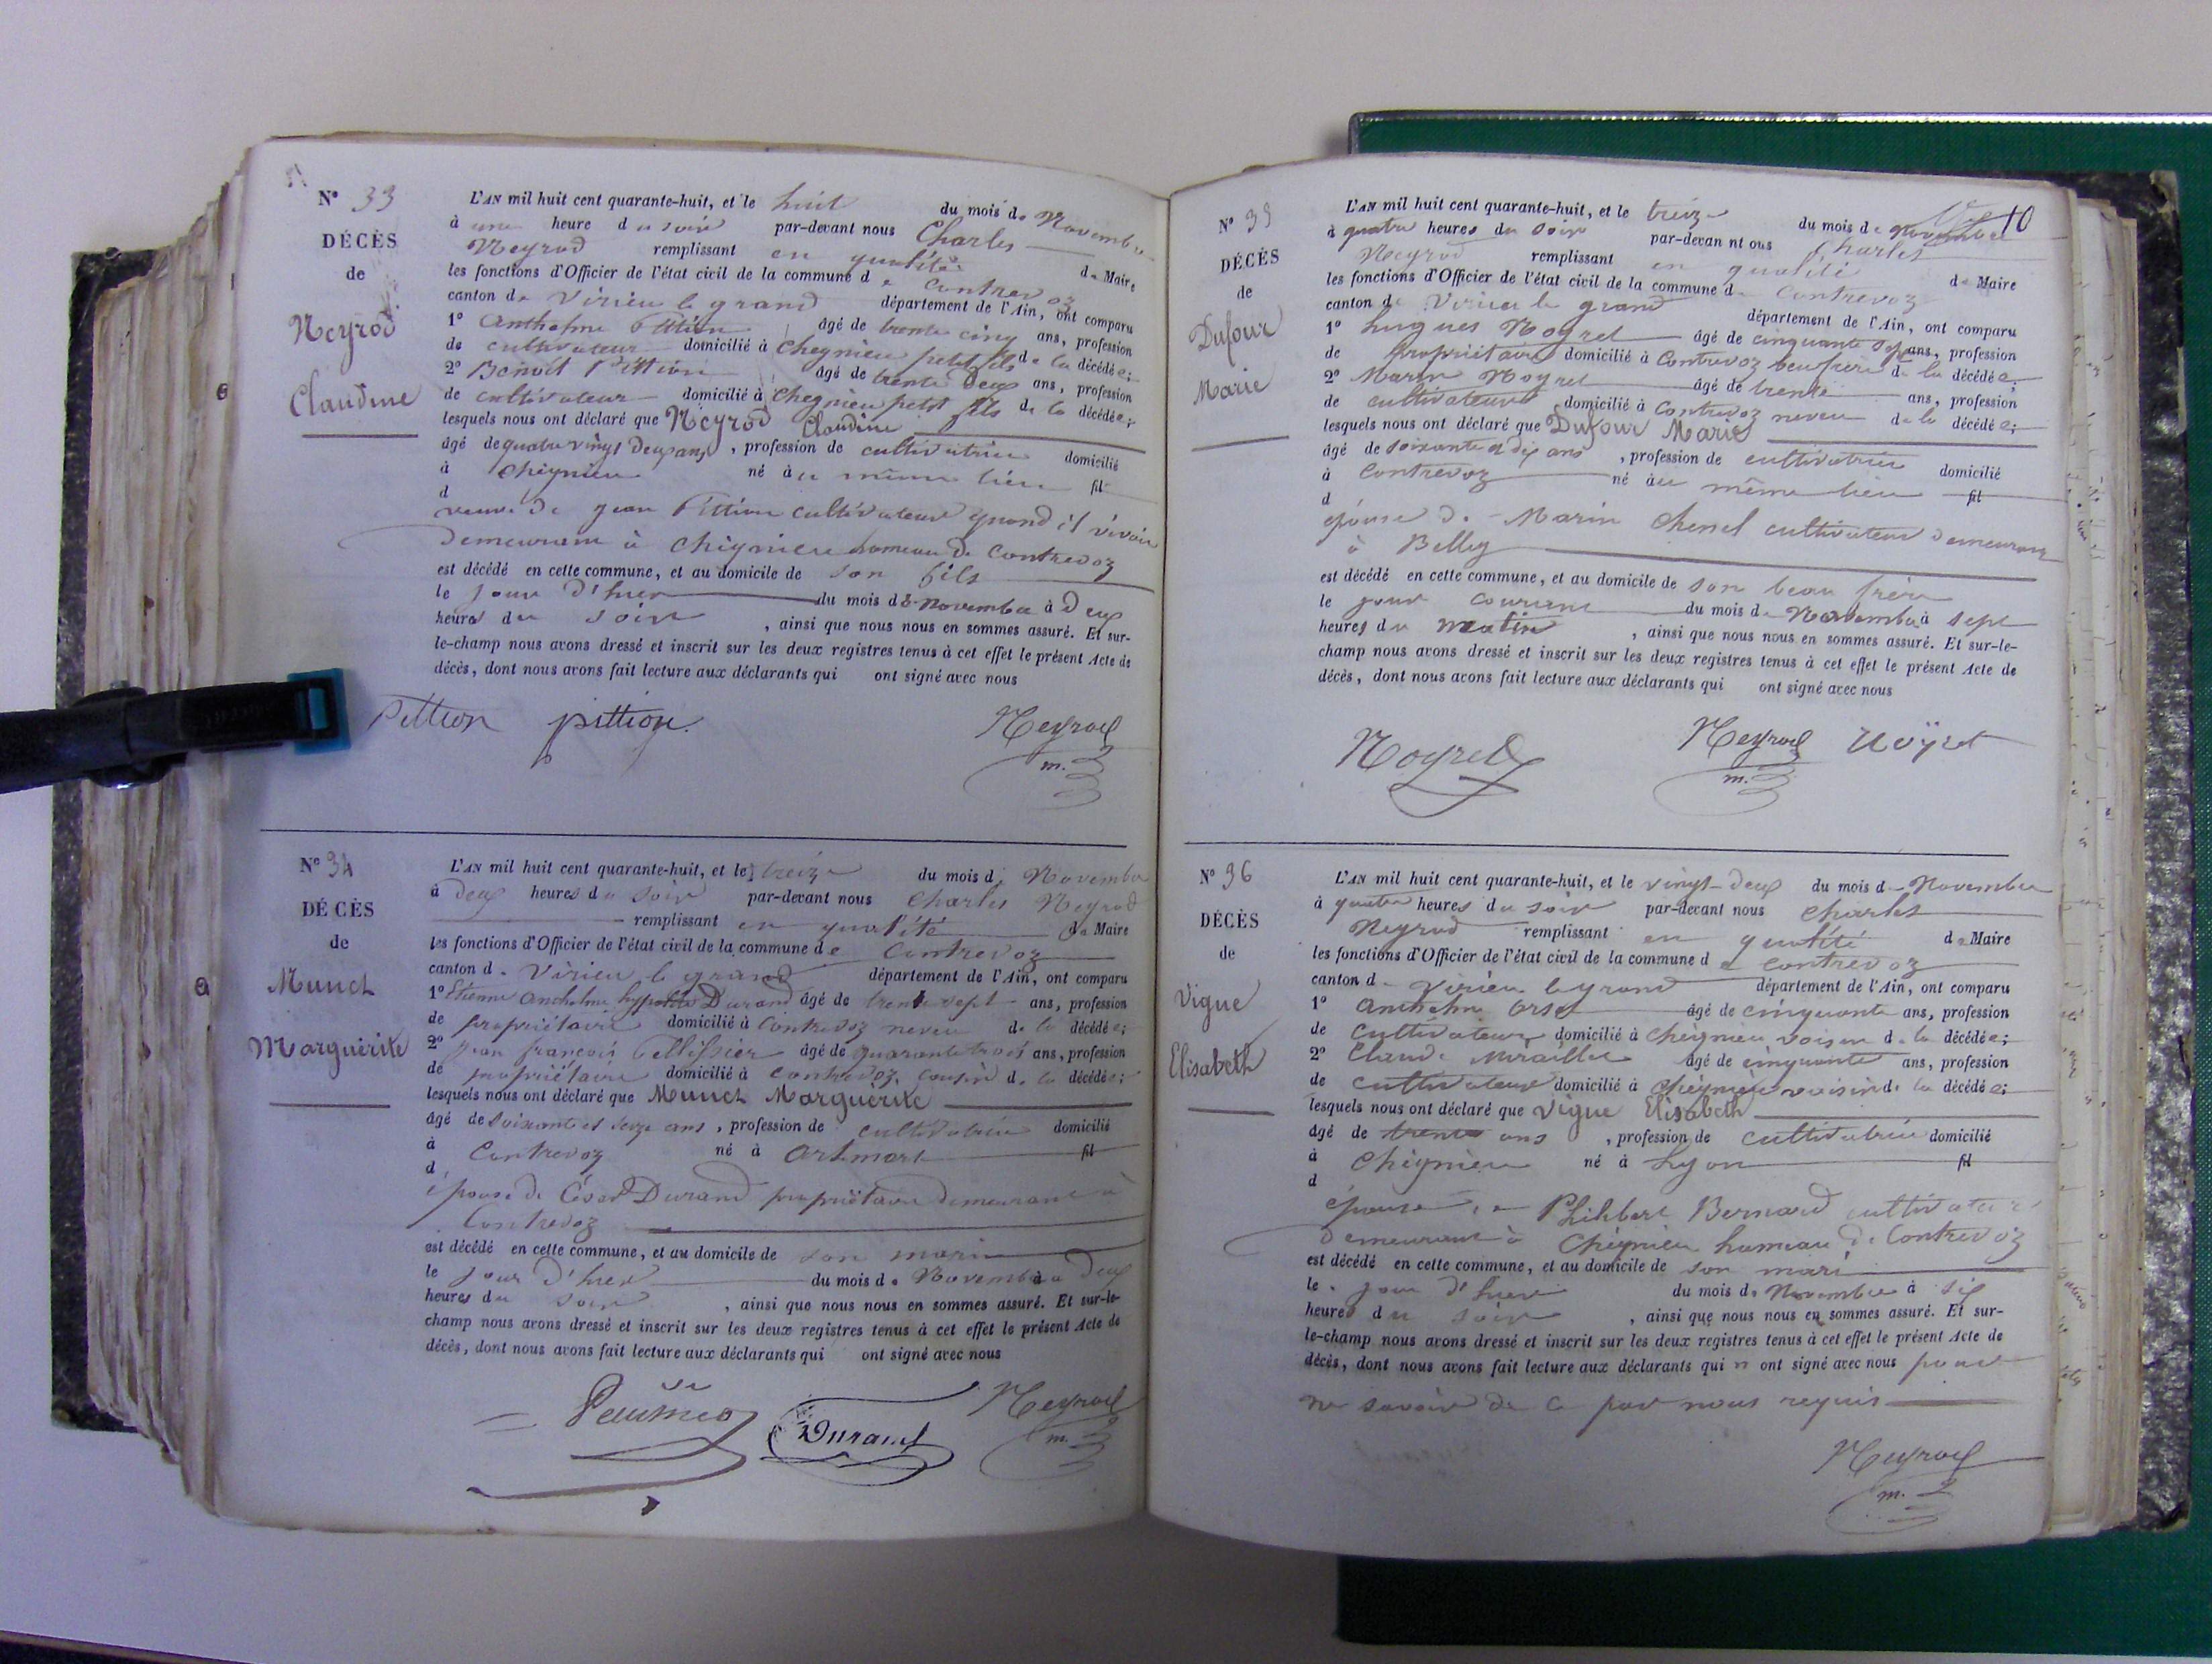 N° 33
DÉCÈS
de
Neyrod
Claudine
L'AN mil huit cent quarante-huit, et le huit du mois de Novembre
à une heure du soir par-devant nous Charles
Neyrod remplissant en qualité de Maire
les fonctions d'Officier de l'état civil de la commune de Contrevoz
canton de Virieu le grand département de l'Ain, ont comparu
1° Anthelme Pittion âgé de trente cinq ans, profession
de cultivateur domicilié à Cheignieu petit fils de la décédée;
2° Benoit Pittion âgé de trente deux ans, profession
de cultivateur domicilié à Cheignieu petit fils de la décédée;
lesquels nous ont déclaré que Neyrod Claudine
âgé de quatre vingt deux ans, profession de cultivatrice domicilié
à Cheignieu né au même lieu fil
d
veuve de Jean Pittion cultivateur quand il vivait
demeurant à Chignieu hameau de Contrevoz
est décédé en cette commune, et au domicile de son fils
le jour d'hier du mois de Novembre à deux
heures du soir, ainsi que nous nous en sommes assuré. Et sur-
le-champ nous avons dressé et inscrit sur les deux registres tenus à cet effet le présent Acte de
décès, dont nous avons fait lecture aux déclarants qui ont signé avec nous
Pittion pittion Neyrod
m.
N° 34
DÉCÈS
de
Munet
Marguerite
L'AN mil huit cent quarante-huit, et le treize du mois de Novembre
à deux heures du soir par-devant nous Charles Neyrod
remplissant en qualité de Maire
les fonctions d'Officier de l'état civil de la commune de Contrevoz
canton de Virieu le grand département de l'Ain, ont comparu
1° Etienne Anthelme hypolite Durand âgé de trente sept ans, profession
de propriétaire domicilié à Contrevoz neveu de la décédée;
2° Jean françois Pellissier âgé de quarante trois ans, profession
de propriétaire domicilié à Contrevoz cousin de la décédée;
lesquels nous ont déclaré que Munet Marguerite
âgé de soixante et seize ans, profession de cultivatrice domicilié
à Contrevoz né à Artemart fil
d
épouse de César Durand propriétaire demeurant à
Contrevoz
est décédé en cette commune, et au domicile de son mari
le jour d'hier du mois de Novembre à deux
heures du soir, ainsi que nous nous en sommes assuré. Et sur-le-
champ nous avons dressé et inscrit sur les deux registres tenus à cet effet le présent Acte de
décès, dont nous avons fait lecture aux déclarants qui ont signé avec nous
Durand Neyrod
m.
10
N° 35
DÉCÈS
de
Dufour
Marie
L'AN mil huit cent quarante-huit, et le treize du mois de Novembre
à quatre heures du soir par-devan nt ous Charles
Neyrod remplissant en qualité de Maire
les fonctions d'Officier de l'état civil de la commune de Contrevoz
canton de Virieu le grand département de l'Ain, ont comparu
1° hugues Noyret âgé de cinquante sept ans, profession
de Propriétaire domicilié à Contrevoz beufrère de la décédée;
2° Marin Noyret âgé de trente ans, profession
de cultivateur domicilié à Contrevoz neveu de la décédée;
lesquels nous ont déclaré que Dufour Marie
âgé de soixante et dix ans, profession de cultivatrice domicilié
à Contrevoz né au même lieu fil
d
épouse de Marin Chenel cultivateur demeurant
à Belley
est décédé en cette commune, et au domicile de son beau frère
le jour courant du mois de Novembre à sept
heures du matin, ainsi que nous nous en sommes assuré. Et sur-le-
champ nous avons dressé et inscrit sur les deux registres tenus à cet effet le présent Acte de
décès, dont nous avons fait lecture aux déclarants qui ont signé avec nous
Noyret Neyrod Noÿret
m.
N° 36
DÉCÈS
de
Vigue
Elisabeth
L'AN mil huit cent quarante-huit, et le vingt-deux du mois de Novembre
à quatre heures du soir par-devant nous Charles
Neyrod remplissant en qualité de Maire
les fonctions d'Officier de l'état civil de la commune de Contrevoz
canton de Virieu le grand département de l'Ain, ont comparu
1° Anthelme Orset âgé de cinquante ans, profession
de Cultivateur domicilié à Cheignieu voisin de la décédée;
2° Claude Miraillet âgé de cinquante ans, profession
de cultivateur domicilié à Cheignieu voisin de la décédée;
lesquels nous ont déclaré que Vigue Elisabeth
âgé de trente ans, profession de cultivatrice domicilié
à Chignieu né à Lyon fil
d
épouse de Philibert Bernard cultivateur
demeurant à Chignieu hameau de Contrevoz
est décédé en cette commune, et au domicile de son mari
le jour d'hier du mois de Novembre à six
heures du soir, ainsi que nous nous en sommes assuré. Et sur-
le-champ nous avons dressé et inscrit sur les deux registres tenus à cet effet le présent Acte de
décès, dont nous avons fait lecture aux déclarants qui n ont signé avec nous pour
ne savoir de ce par nous requis
Neyrod
m.